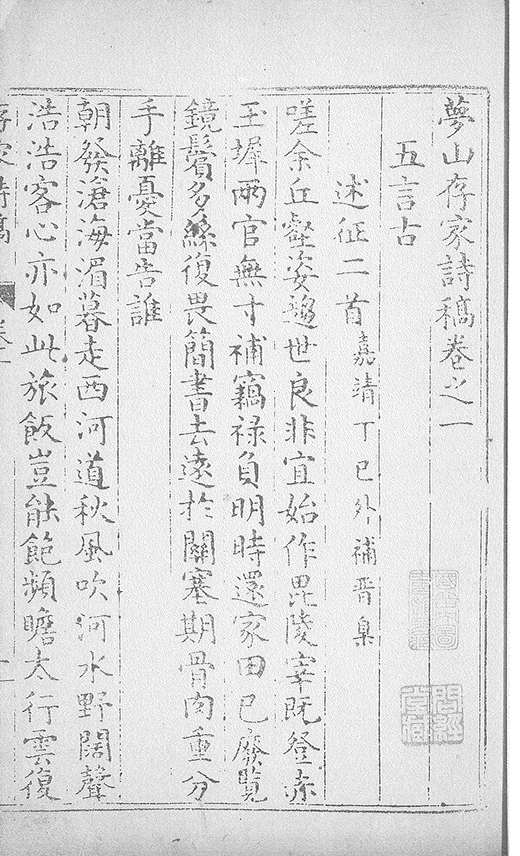 夢山存家詩稿卷之一
五言古
述征二首嘉靖丁巳外補晋臬
嗟余丘壑姿趨世良非宜始作毘陵宰既登赤
玉墀兩官無寸補竊祿負明時還家田已廢覧
鏡鬢多絲復畏簡書去遠於關塞期骨肉重分
手離憂當告誰
朝發滄海湄暮走西河道秋風吹河水野闊聲
浩浩客心亦如此旅飯豈能飽頻瞻太行雲復
存家詩稿 卷一 一